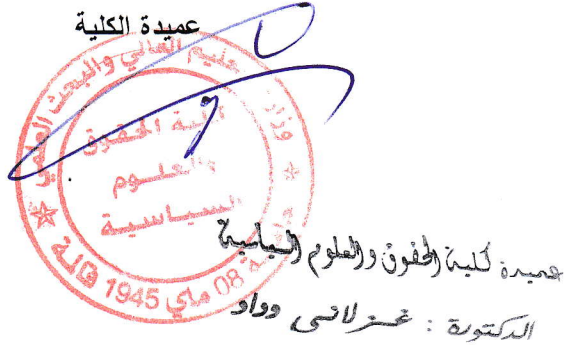 عميدة الكلية
وزارة التعليم العالي والبحث العلمي
كلية الحقوق
والعلوم
السياسية
جامعة 08 ماي 1945 قالمة
عميدة كلية الحقوق والعلوم السياسية
الدكتورة : غزلاني وداد